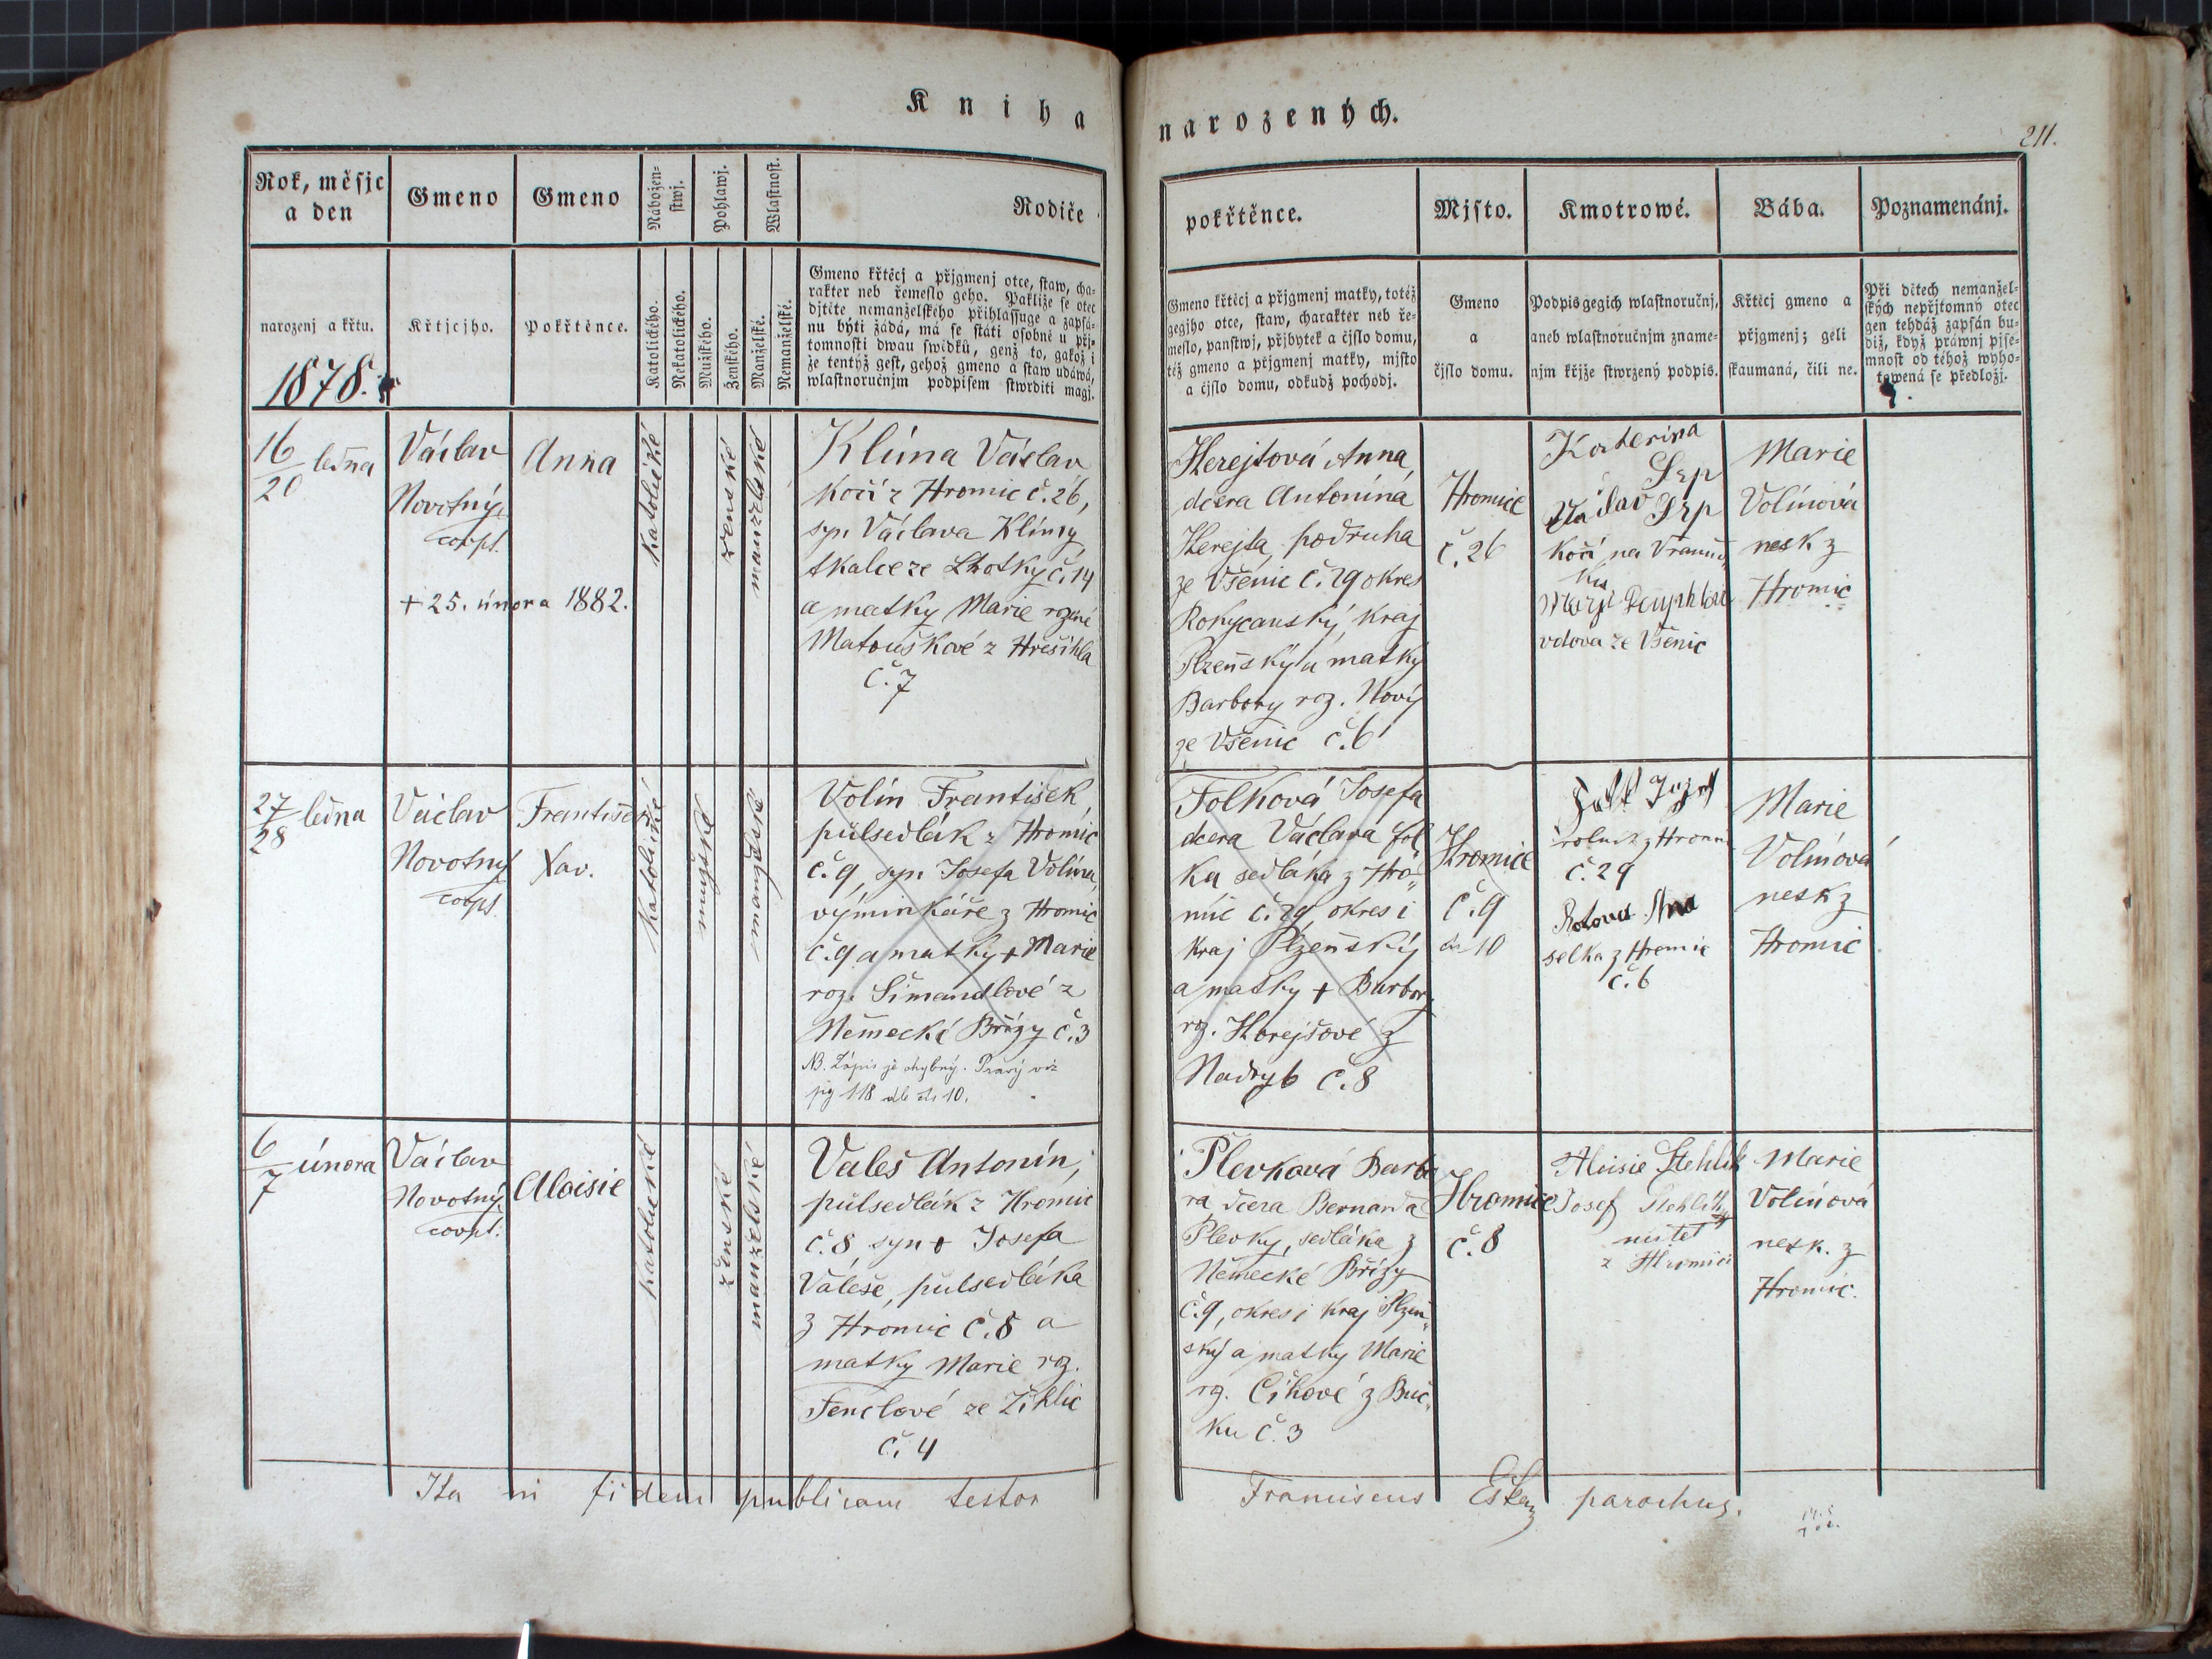 Kniha
narozených.
211.
Rok, měsjc
a den
Gmeno
Gmeno
Nábožen-
stwj.
Pohlawj.
Wlastnost.
Rodiče
pokřtěnce.
Mjsto.
Kmotrowé.
Bába.
Poznamenánj.
narozenj a křtu.
1878.
Křtjcjho.
Pokřtěnce.
Katolického.
Nekatolického.
Mužského.
Ženského.
Manželské.
Nemanželské.
Gmeno křtěcj a přjgmenj otce, staw, cha-
rakter neb řemeslo geho. Pakliže se otec
djtěte nemanželského přihlassuge a zapsá-
nu býti žádá, má se státi osobně u přj-
tomnosti dwau swědků, genž to, gakož i
že tentýž gest, gehož gmeno a staw udáwá,
wlastnoručnjm podpisem stwrditi magj.
Gmeno křtěcj a přjgmenj matky, totéž
gegjho otce, staw, charakter neb ře-
meslo, panstwj, přjbytek a čjslo domu,
též gmeno a přjgmenj matky, mjsto
a čjslo domu, odkudž pochodj.
Gmeno
a
čjslo domu.
Podpis gegich wlastnoručnj,
aneb wlastnoručnjm zname-
njm křjže stwrzený podpis.
Křtěcj gmeno a
přjgmenj; geli
skaumaná, čili ne.
Při dětech nemanžel-
ských nepřjtomný otec
gen tehdáž zapsán bu-
diž, když práwnj pjse-
mnost od téhož wyho-
towená se předložj.
16
20 ledna
Václav
Novotný
coopt.
Anna
+ 25. února 1882.
katolické
ženské
manželské
Klima Václav
kočí z Hromic č. 26,
syn Václava Klímy
tkalce ze Lhotky č. 14
a matky Marie rozené
Matouškové z Hřešihla
č. 7
Herejtová Anna,
dcera Antonína
Herejta, podruha
ze Všenic č. 29 okres
Rokycanský, kraj
Plzeňský a matky
Barbory roz. Nový
ze Všenic č. 6
Hromice
č. 26
Kateřina
Srp
Václav Srp
kočí na
vdova ze Všenic
Marie
Volínová
nesk z
Hromic
27
28 ledna
Václav
Novotný
coopt.
František
Xav.
katolické
mužské
manželské
Volín František,
půlsedlák z Hromic
č. 9, syn Josefa Volína,
výminkáře z Hromic
č. 9 a matky + Marie
roz. Šimandlové z
Německé Břízy č. 3
NB. Zápis je chybný. Pravý viz
pag 118 dle čís 10.
Folková Josefa
dcera Václava Fol
ka sedláka z Hro„
mic č. 29 okres i
kraj Plzeňský
a matky + Barbory
rz. Horejšové z
Nadryb č. 8
Hromice
č. 9
čís 10
rolník z Hromic
č. 29
selka z Hromic
č. 6
Marie
Volínová
nesk z
Hromic
6
7 února
Václav
Novotný
coopt.
Aloisie
katolické
ženské
manželské
Valeš Antonín,
půlsedlák z Hromic
č. 8, syn + Josefa
Valeše, půlsedláka
z Hromic č. 8 a
matky Marie rz.
Fenclové ze Žihlic
č. 4
Plevková Barbo
ra, dcera Bernarda
Plevky, sedláka z
Německé Břízy
č. 9, okres i kraj Plzeň„
ský a matky Marie
rz. Cihové z Buč„
ku č. 3
Hromice
č. 8
Aloisie Stehlík
Josef Stehlík
učitel
z Hromic
Marie
Volínová
nesk. z
Hromic.
Ita in fidem publicam testor
Franciscus parochus.